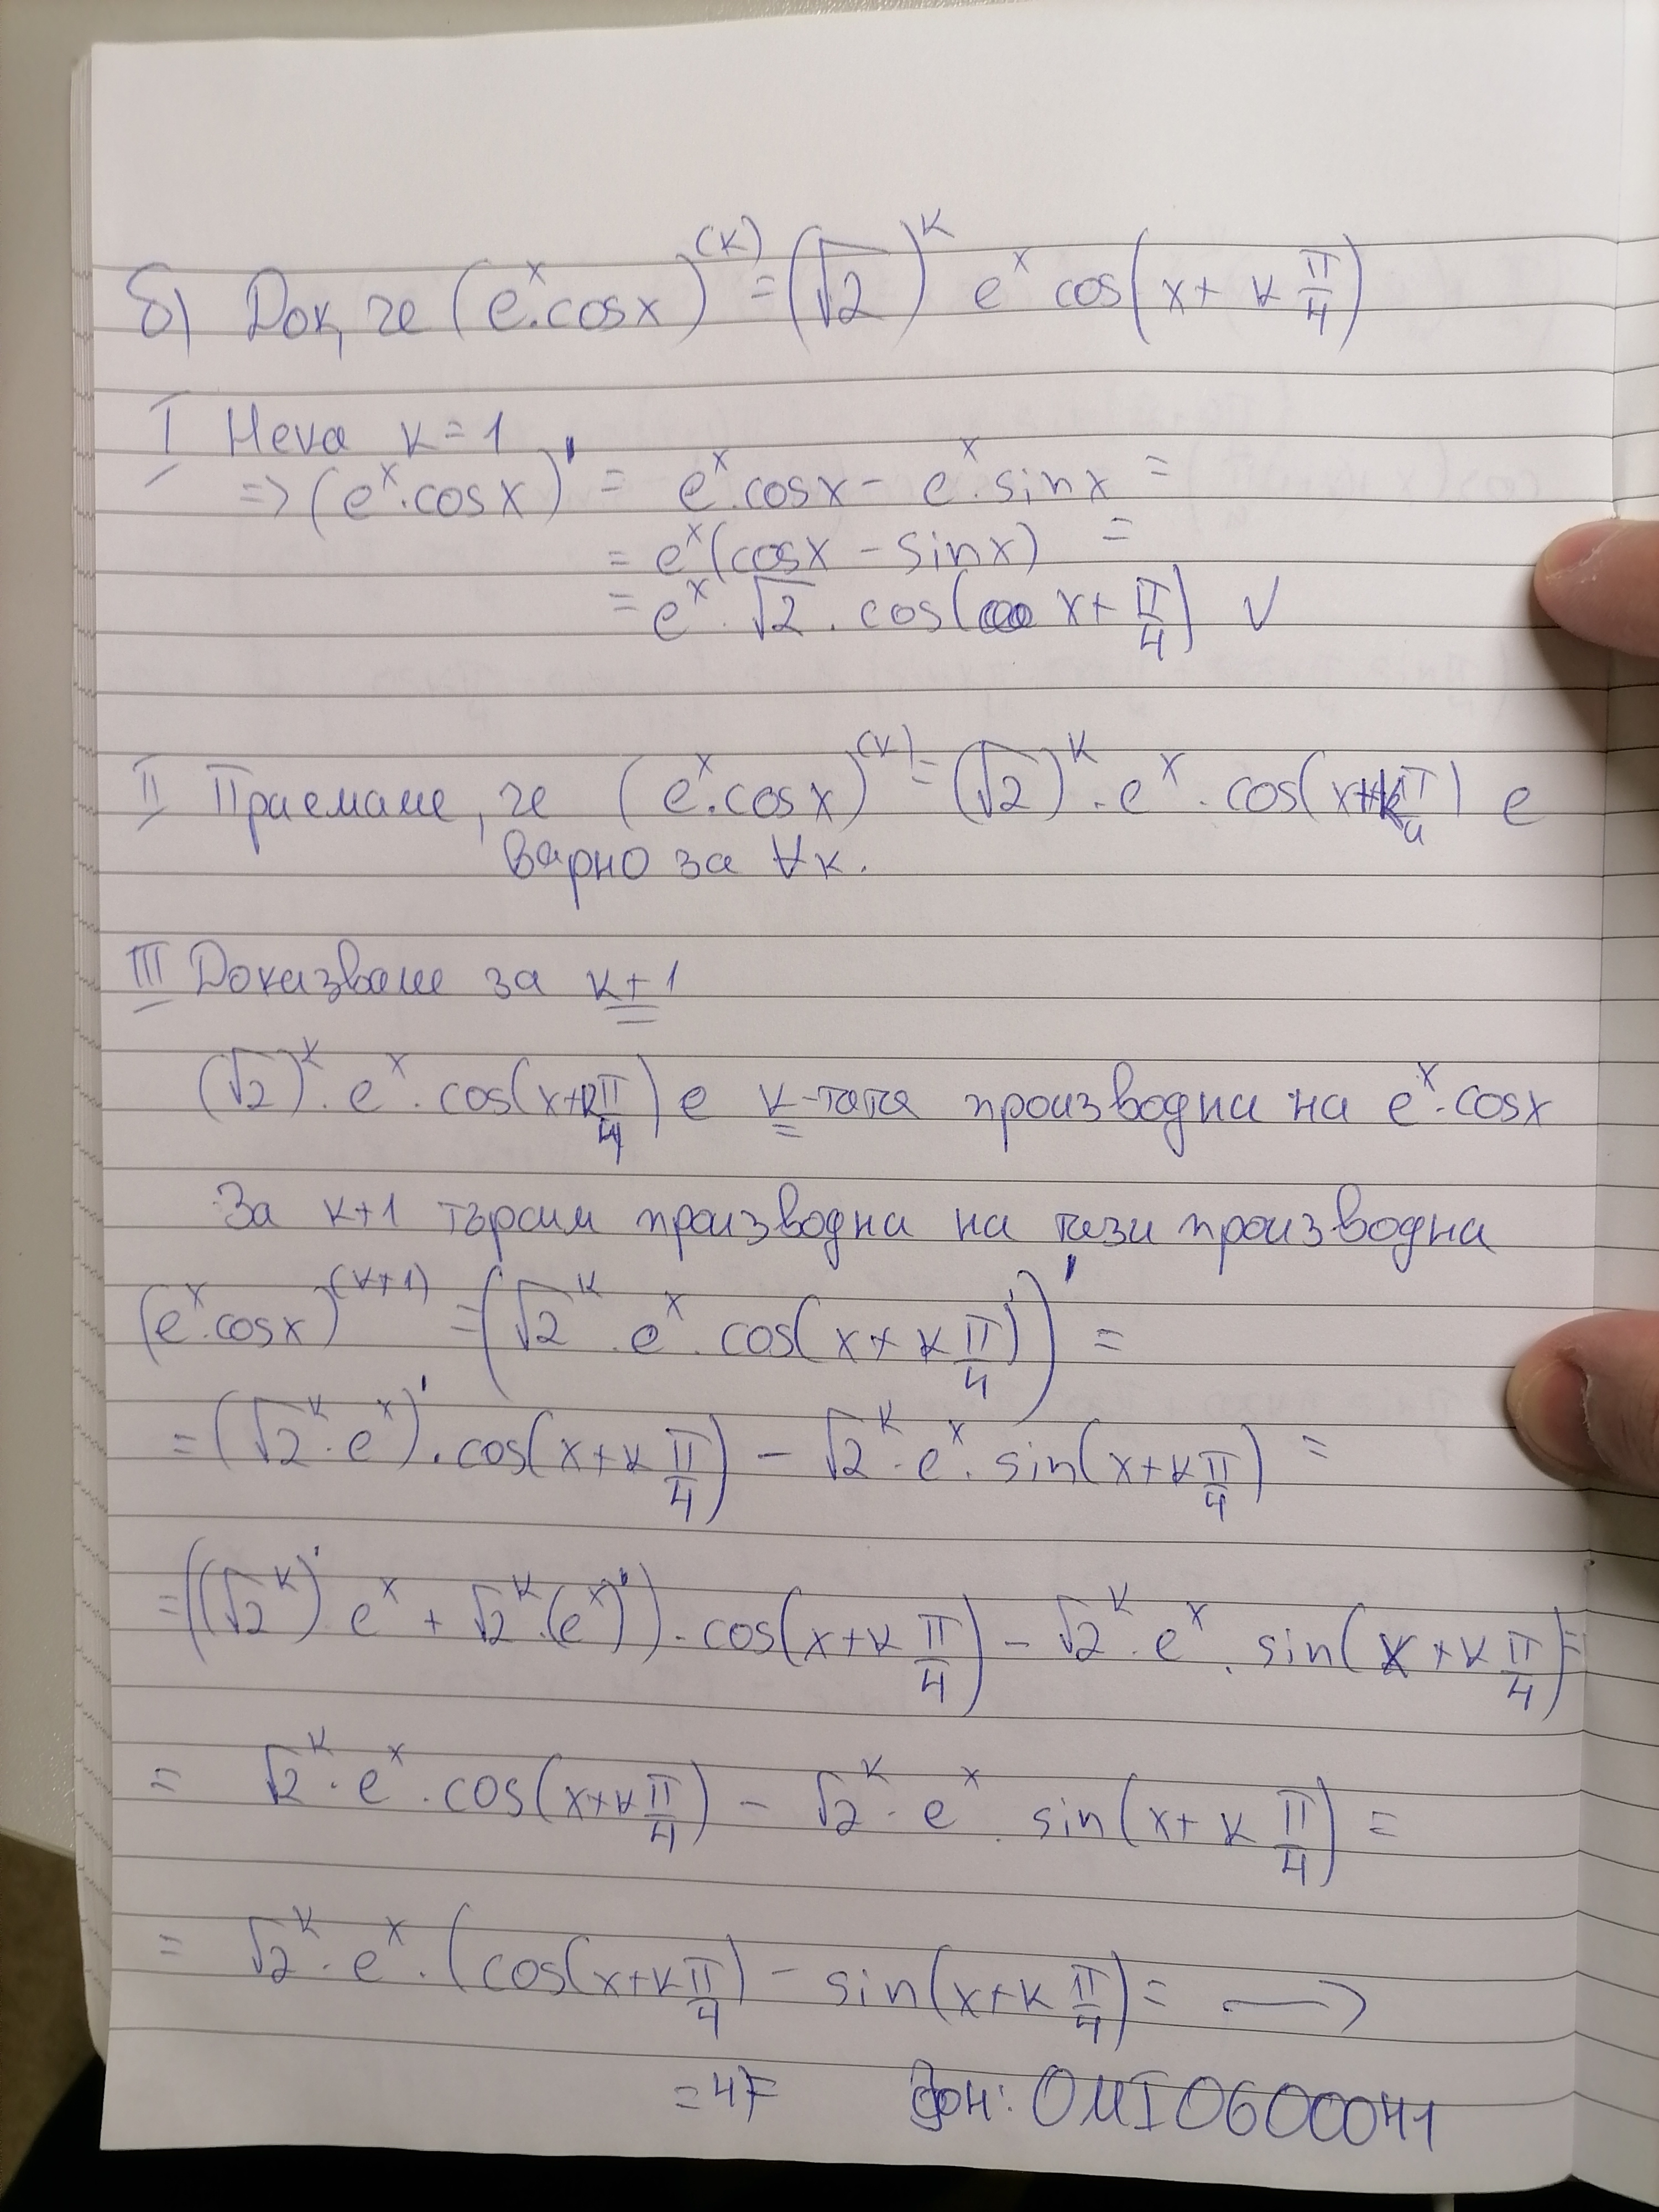 б) Док, че (eˣ.cosx)⁽ᵏ⁾ = (√2)ᵏ eˣ cos(x + k π/4)
I Нека k = 1
=> (eˣ.cosx)' = eˣ.cosx - eˣ.sinx =
= eˣ(cosx - sinx) =
= eˣ.√2.cos(x + π/4) ✓
II Приемаме, че (eˣ.cosx)⁽ᵏ⁾ = (√2)ᵏ.eˣ.cos(x+kπ/4) е
вярно за ∀k.
III Доказваме за k+1
(√2)ᵏ.eˣ.cos(x+kπ/4) е k-тата производна на eˣ.cosx
За k+1 търсим производна на тази производна
(eˣ.cosx)⁽ᵏ⁺¹⁾ = (√2ᵏ.eˣ.cos(x + k π/4))' =
= (√2ᵏ.eˣ)'.cos(x+k π/4) - √2ᵏ.eˣ.sin(x+k π/4) =
= ((√2ᵏ)' eˣ + √2ᵏ.(eˣ)').cos(x+k π/4) - √2ᵏ.eˣ.sin(x+k π/4) =
= √2ᵏ.eˣ.cos(x+k π/4) - √2ᵏ.eˣ.sin(x+ k π/4) =
= √2ᵏ.eˣ.(cos(x+k π/4) - sin(x+k π/4) = →
=4= ФН: 0MI0600041